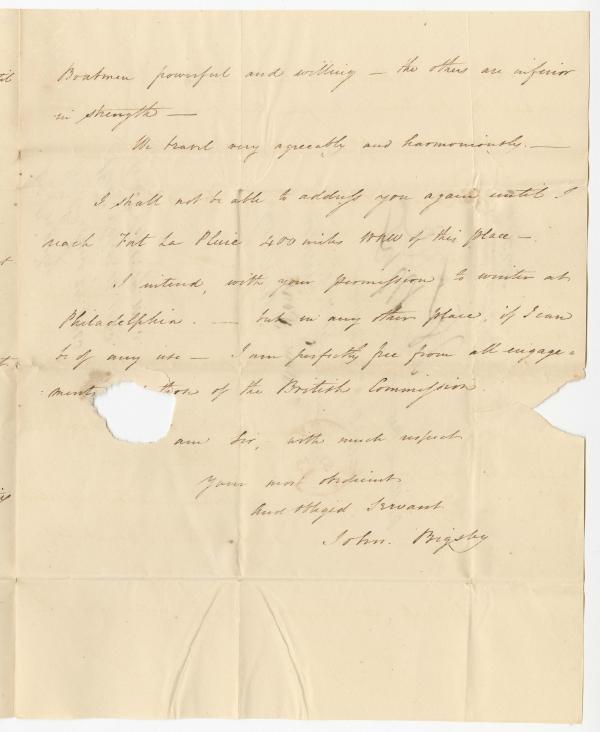 Boatmen powerful and willing — the others are inferior
in strength —
We travel very agreeably and harmoniously. —
I shall not be able to address you again until I
reach Fort La Pluie 400 miles WNW of this place —
I intend, with your permission, to winter at
Philadelphia. — but in any other place, if I can
be of any use — I am perfectly free from all engage=
=ments of the British Commission.
am Sir, with much respect
Your most obedient
And obliged Servant
John. Bigsby